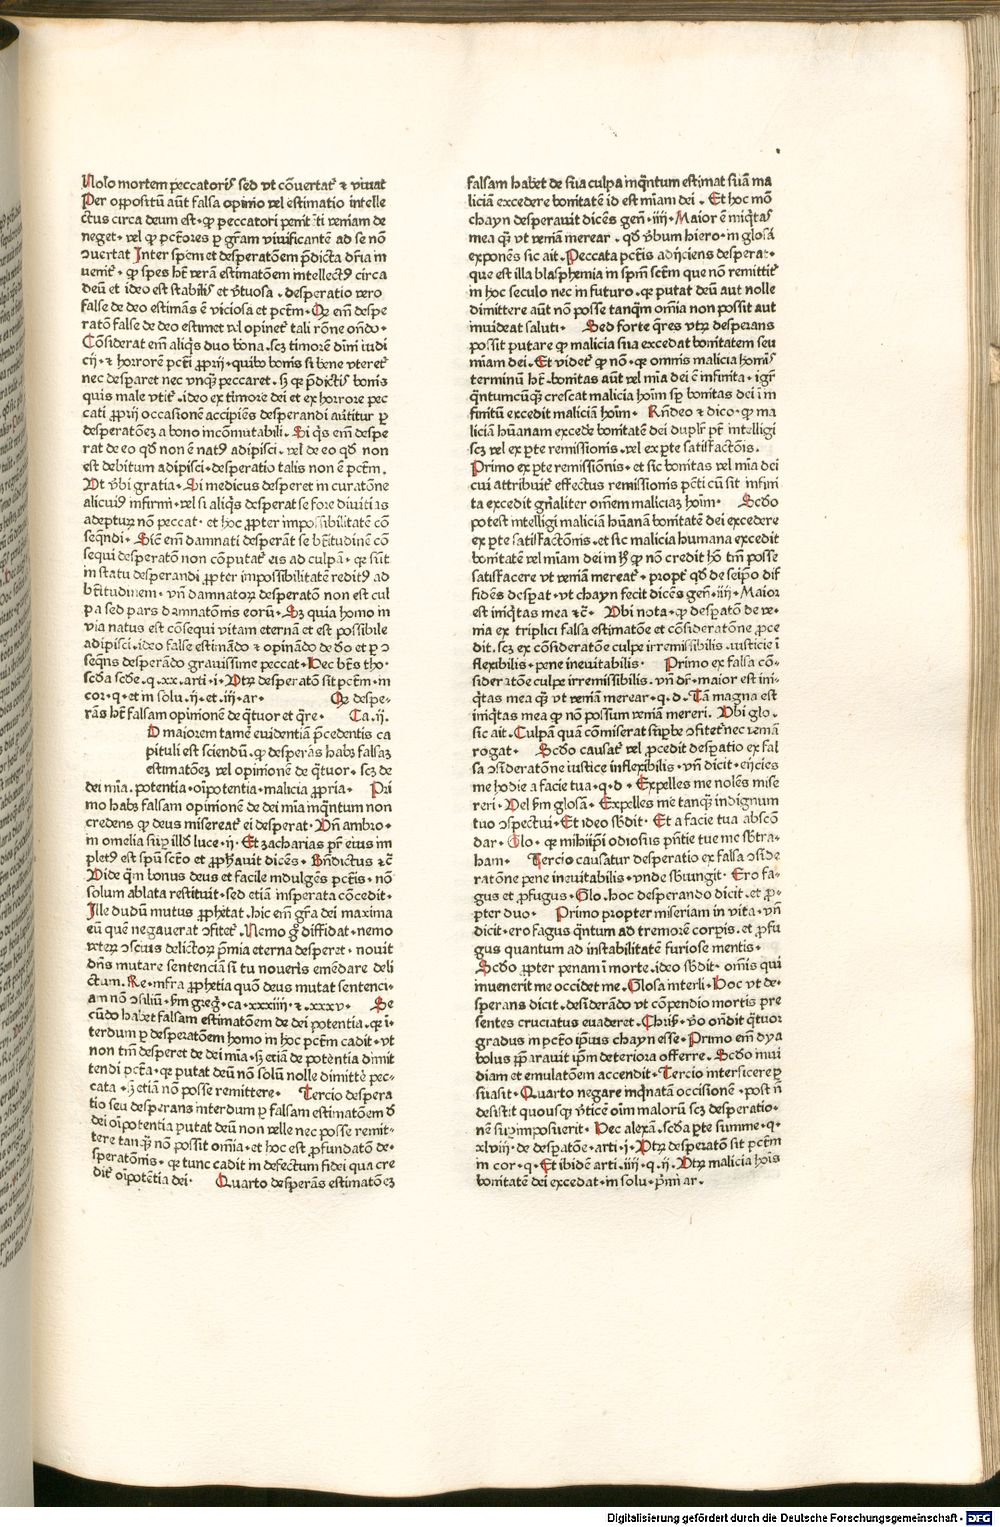 Nolo mortem peccatoris sed vt cōuertat̉ ⁊ viuat
Per oppositū aūt falsa opinio vel estimatio intelle
ctus circa deum est · qꝫ peccatori penitēti veniam de
neget · vel qꝫ pctōres per grām viuificantē ad se nō
ꝯuertat Inter spem et desperatōem pdicta dr̄ia in
uenit̉ · qꝫ spes hꝫ verā estimatōem intellectꝰ circa
deū et ideo est stabilis et v̄tuosa · desperatio vero
false de deo estimās ē viciosa et pctm̄ · Qꝫ em̄ despe
ratō false de deo estimet vel opinet̉ tali rōne on̄do ·
Considerat em̄ aliqs duo bona · scꝫ timorē dini iudi
cij · ⁊ horrorē pcti proprij · quibꝰ bonis si bene vteret̉
nec desperaret nec vnqꝫ peccaret · sꝫ qꝫ pdictis bonis
quis male vtit̉ · ideo ex timore dei et ex horrore pec
cati proprij occasionē accipiēs desperandi auertitur p
desperatōeꝫ a bono incōmutabili · Si qs em̄ despe
rat de eo qd̄ non ē natꝰ adipisci · vel de eo qd̄ non
est debitum adipisci · desperatio talis non ē pctm̄ ·
Vt vbi gratia · Si medicus desperet in curatōne
alicuiꝰ infirmi · vel si aliqs desperat se fore diuitias
adepturū nō peccat · et hoc propter impossibilitatē cō
seqndi · Sic em̄ damnati desperāt se btitudinē cō
sequi desperatō non cōputat̉ eis ad culpā · qꝫ sūt
in statu desperandi propter impossibilitatē reditꝰ ad
btitudinem · vn̄ damnatoꝝ desperatō non est cul
pa sed pars damnatōnis eorū · Sꝫ quia homo in
via natus est cōsequi vitam eternā et est possibile
adipisci · ideo false estimādo ⁊ opinādo de deo et per ꝯ
seqns desperādo grauissime peccat · Hec btūs tho ·
scd̄a scd̄e · q · xx · arti · i · Vtꝝ desperatō sit pctm̄ · in
cor · q · et in solu · ij · et · iij · ar · Qꝫ despe-
rās hꝫ falsam opinionē de qtuor et qre · Ca · ij ·
D maiorem tamē euidentiā pcedentis ca
pituli est sciendū · qꝫ desperās habꝫ falsaꝫ
estimatōeꝫ vel opinionē de qtuor · scꝫ de
dei mia · potentia · oīpotentia · malicia propria · Pri
mo habꝫ falsam opinionē de dei mia inqntum non
credens qꝫ deus misereat̉ ei desperat · Vn̄ ambro ·
in omelia sup illd̄ luce · ij · Et zacharias pr̄ eius im
pletꝰ est spū scto et prophauit dicēs · Bn̄dictus ⁊c̄
Vide qm̄ bonus deus et facile indulgēs pctis · nō
solum ablata restituit · sed etiā insperata cōcedit ·
Ille dudū mutus prophetat · hic em̄ grā dei maxima
eū quē negauerat ꝯfitet̉ · Nemo g̊ diffidat · nemo
veterꝝ ꝯscius delictoꝝ pmia eterna desperet · nouit
dn̄s mutare sentenciā si tu noueris emēdare deli
ctum · Re · infra prophetia quō deus mutat sentenci-
am nō ꝯsiliū · fm greg̊ · ca · xxxiiij · ⁊ · xxxv · Se
cūdo habet falsam estimatōem de dei potentia · qꝫ i-
terdum p desperatōem homo in hoc pctm̄ cadit · vt
non tm̄ desperet de dei mia · sꝫ etiā de potētia dimit
tendi pctā · qꝫ putat deū nō solū nolle dimittē pec-
cata · sꝫ etiā nō posse remittere · Tercio despera
tio seu desperans interdum p falsam estimatōem d̄
dei oīpotētia putat deū non velle nec posse remit-
tere tanqꝫ nō possit om̄ia · et hoc est profundatō de-
speratōnis · qꝫ tunc cadit in defectum fidei qua cre
dit̉ oīpotētia dei · Quarto desperās estimatōeꝫ
falsam habet de sua culpa inqntum estimat suā ma
liciā excedere bonitatē id est miam dei · Et hoc mō
chayn desperauit dicēs gen̄ · iiij · Maior ē iniqtas
mea qꝫ vt veniā merear · qd̄ v̄bum hiero · in glosa
exponēs sic ait · Peccata pctis adijciens desperat ·
que est illa blasphemia in spm̄ sctm̄ que nō remittit̉
in hoc seculo nec in futuro · qꝫ putat deū aut nolle
dimittere aut nō posse tanqm om̄ia non possit aut
inuideat saluti · Sed forte qres vtrꝝ desperans
possit putare qꝫ malicia sua excedat bonitatem seu
miam dei · Et videt̉ qꝫ nō · qꝫ omnis malicia homīs
terminū hꝫ · bonitas aūt vel mia dei ē infinita · igr̄
qntumcūqꝫ crescat malicia hoīm sp bonitas dei i in
finitū excedit maliciā hoīm · Rn̄deo ⁊ dico · qꝫ ma
liciā hūanam excede bonitatē dei duplr̄ pt̄ intelligi
scꝫ vel ex pte remissionis · vel ex pte satisfactōis ·
Primo ex pte remissiōnis · et sic bonitas vel mia dei
cui attribuit̉ effectus remissionis pcti cū sit infini
ta excedit gn̄aliter om̄em maliciaꝫ hoīm · Scd̄o
potest intelligi maliciā hūanā bonitatē dei excedere
ex pte satisfactōnis · et sic malicia humana excedit
bonitatē vel miam dei in hꝰ qꝫ nō credit ho tm̄ posse
satisfacere vt veniā mereat̉ · propt̉ qd̄ de seipo dif
fidēs despat · vt chayn fecit dicēs gen̄ · iiij · Maior
est iniqtas mea ⁊c̄ · Vbi nota · qꝫ despatō de ve-
nia ex triplici falsa estimatōe et cōsideratōne proce
dit · scꝫ ex cōsideratōe culpe irremissibilis · iusticie i
flexibilis · pene ineuitabilis · Primo ex falsa cō-
sideratōne culpe irremissibilis · vn̄ dr̄ · maior est ini-
qtas mea qꝫ vt veniā merear · q · d · Tā magna est
iniqtas mea qꝫ nō possum veniā mereri · Vbi glo ·
sic ait · Culpā quā cōmiserat supbe ꝯfitet̉ nec veniā
rogat · Scd̄o causat̉ vel procedit despatio ex fal
sa ꝯsideratōne iustice inflexibilis · vn̄ dicit · eijcies
me hodie a facie tua · q · d · Expelles me nolēs mise
reri · Vel fm glosā · Expelles me tanqꝫ indignum
tuo ꝯspectui · Et ideo sbdit · Et a facie tua abscō
dar · Glo · qꝫ mihijpi odiosus pntie tue me sbtra-
ham · Tercio causatur desperatio ex falsa ꝯside
ratōne pene ineuitabilis · vnde sbiungit · Ero fa-
gus et profugus · Glo · hoc desperando dicit · et pro-
pter duo · Primo propter miseriam in vita · vn̄
dicit · ero fagus qntum ad tremorē corpis · et profu
gus quantum ad instabilitatē furiose mentis ·
Scd̄o propter penam i morte · ideo sbdit · om̄is qui
inuenerit me occidet me · Glosa interli · Hoc vt de-
sperans dicit · desiderādo vt cōpendio mortis pre
sentes cruciatus euaderet · Chrisꝰ · vo on̄dit qtuor
gradus in pctō ipīus chayn esse · Primo em̄ dya
bolus prarauit ipm̄ deteriora offerre · Scd̄o inui
diam et emulatōem accendit · Tercio intersicere p
suasit · Quarto negare inqnatā occisionē · post n̄
desistit quousqꝫ v̄ticē oīm malorū scꝫ desperatio-
nē supimposuerit · Hec alexā · scd̄a pte summe · q ·
xlviij · de despatōe · arti · i · Vtrꝝ desperatō sit pctm̄
in cor · q · Et ibidē arti · iiij · q · ij · Vtrꝝ malicia hoīs
bonitatē dei excedat · in solu · pmi ar ·
Digitalisierung gefördert durch die Deutsche Forschungsgemeinschaft - DFG